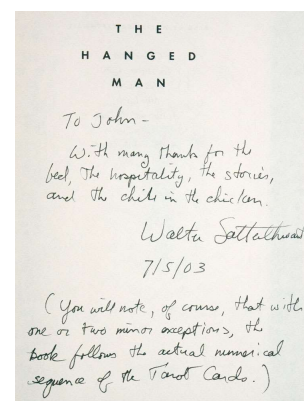 THE
HANGED
MAN
To John -
With many thanks for the
bed, the hospitality, the stories,
and the chili in the chicken.
Walter Satterthwait
7/5/03
(You will note, of course, that with
one or two minor exceptions, the
book follows the actual numerical
sequence of the Tarot Cards.)